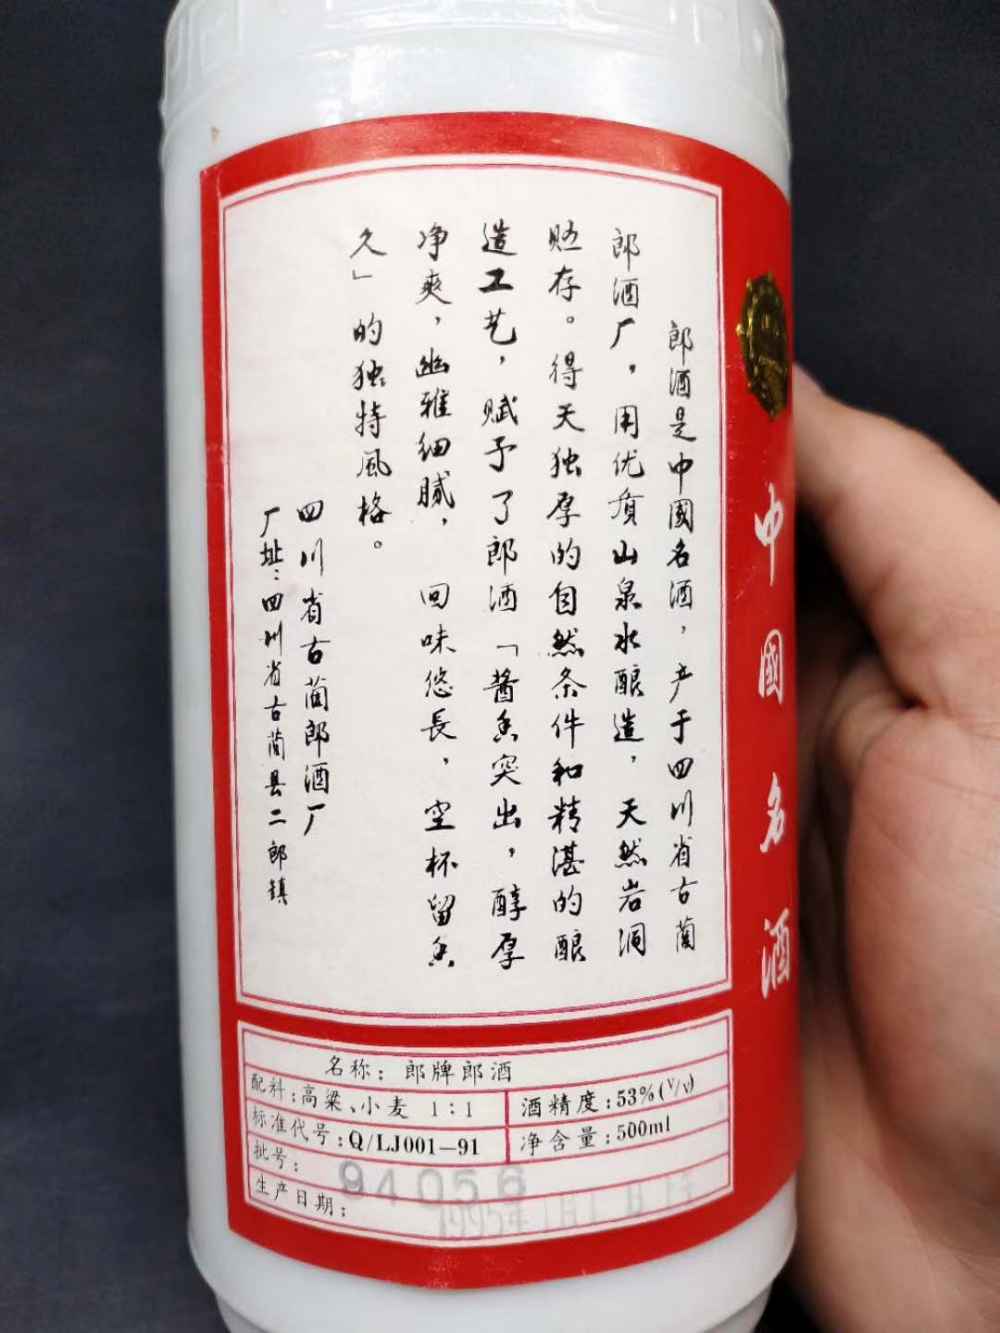 中國名酒
郎酒是中國名酒，产于四川省古蔺
郎酒厂，用优质山泉水酿造，天然岩洞
贮存。得天独厚的自然条件和精湛的酿
造工艺，赋予了郎酒「酱香突出，醇厚
净爽，幽雅细腻，回味悠長，空杯留香
久」的独特風格。
四川省古蔺郎酒厂
厂址：四川省古蔺县二郎镇
名称：郎牌郎酒
配料：高粱、小麦 1：1
酒精度：53%(V/v)
标准代号：Q/LJ001—91
净含量：500ml
批号：94056
生产日期：1995年